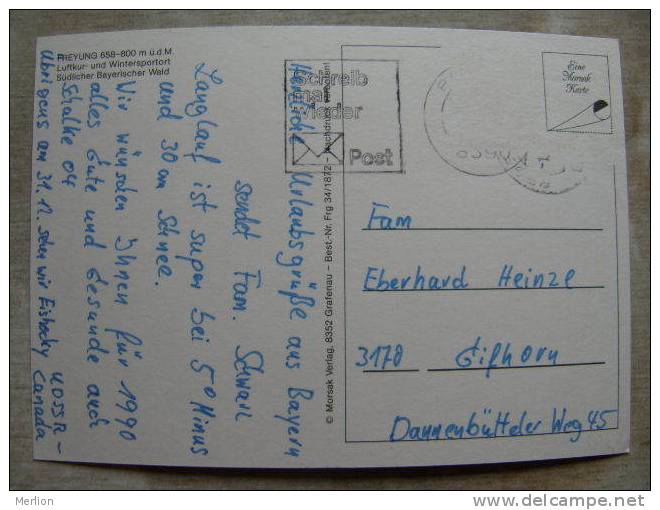 FREYUNG 658–800 m ü.d.M.
Luftkur- und Wintersportort
Südlicher Bayerischer Wald
Herzliche Urlaubsgrüße aus Bayern
sendet Fam.
Langlauf ist super bei 5° Minus
und 30 cm Schnee.
Wir wünschen Ihnen für 1990
alles Gute und Gesunde auch
Schalke 04
Übrigens am 31.12. sehen wir Eishocky UDSSR –
Canada
© Morsak Verlag, 8352 Grafenau – Best.-Nr. Frg 34/1872 – Nachdruck verboten!
Schreib
mal
wieder
Post
Eine
Morsak
Karte
Fam
Eberhard Heinze
3170 Gifhorn
Dannenbütteler Weg 45
Merlion
www.delcampe.net